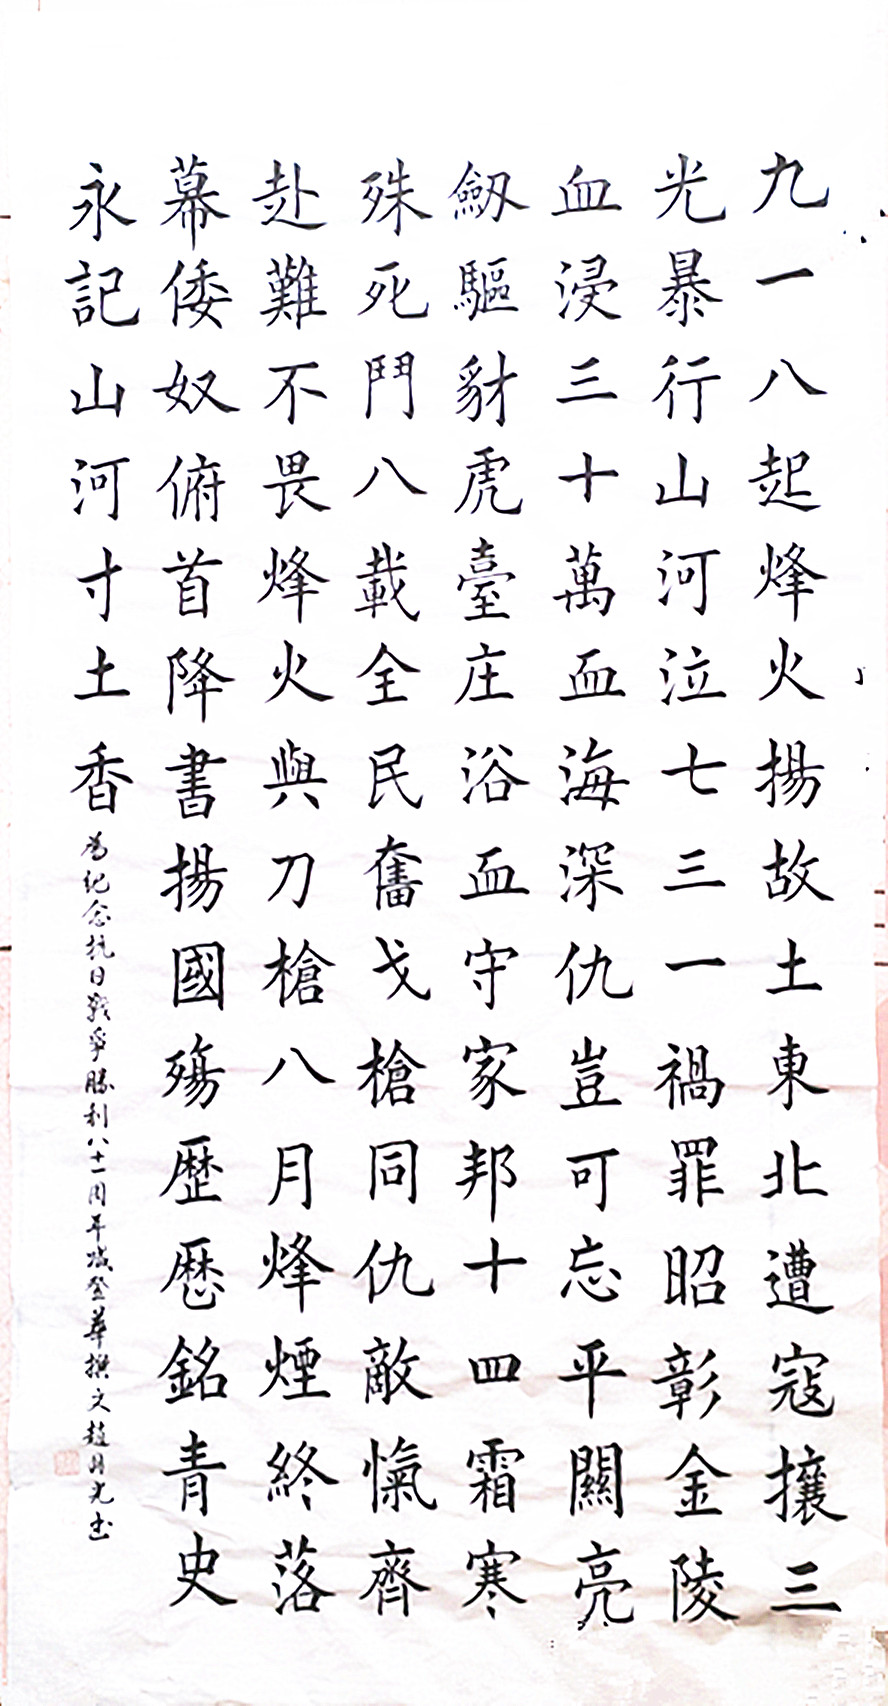 九一八起烽火揚故土東北遭寇攘三
光暴行山河泣七三一禍罪昭彰金陵
血浸三十萬血海深仇豈可忘平關亮
劔驅豺虎臺庄浴血守家邦十四霜寒
殊死鬥八載全民奮戈槍同仇敵愾齊
赴難不畏烽火與刀槍八月烽煙終落
幕倭奴俯首降書揚國殤歷歷銘青史
永記山河寸土香
為紀念抗日戰爭勝利八十一周年 登華撰文趙月光書